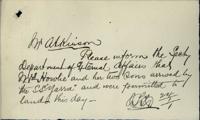 Mr Atkinson
Please inform the Secty
Department of External Affairs that
Mrs Howie and her two sons arrived by
the S.S. Yarra and were permitted to
land this day —